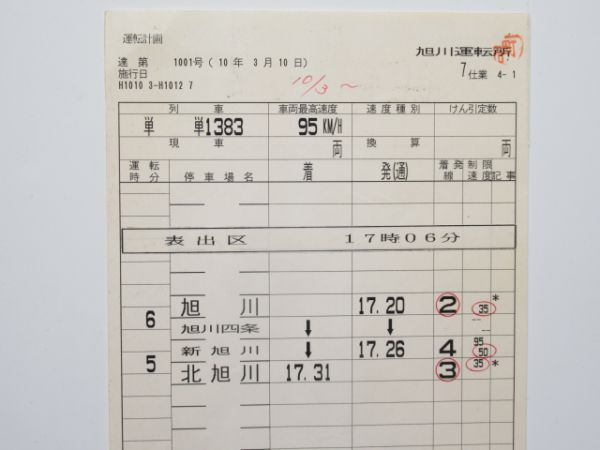 運転計画
達 第 1001号 ( 10 年 3 月 10 日 )
施行日
H1010 3-H1012 7
10/3 ～
旭川運転所
7 仕業 4- 1
列 車 車両最高速度 速度種別 けん引定数
単 単1383 95 KM/H
現 車 両 換 算 両
運転時分 停車場名 着 発(通) 着発線 制限速度 記事
表出区 17時06分
旭 川 17.20 2 35 *
6
旭川四条 ↓ ↓ -- --
新旭川 ↓ 17.26 4 95 50
5
北旭川 17.31 3 35 *